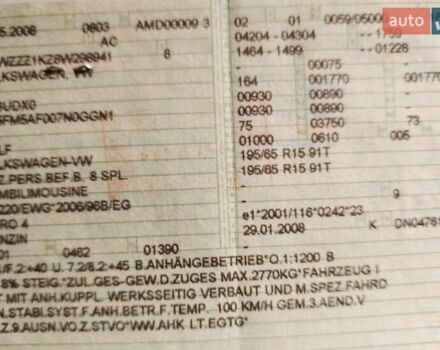 auto
5.2008 0603 AMD00009 3 02 01 0059/05000
AC 04204 - 04304 - - 1759
WZZZ1KZ8W298941 8 1464 - 1499 - - 01228
LKSWAGEN, VW - 00075 -
164 001770 001770
8UDX0 00930 00890 - -
5FM5AF007N0GGN1 00930 00890 - -
75 03750 73
LF 01000 0610 005
LKSWAGEN-VW 195/65 R15 91T
Z.PERS.BEF.B. 8 SPL. 195/65 R15 91T
MBILIMOUSINE -
220/EWG*2006/96B/EG - 9
RO 4 e1*2001/116*0242*23
NZIN 29.01.2008 K DN04761
01 0462 01390
UF.2:+40 U. 7.2/8.2:+45 B.ANHÄNGEBETRIEB*O.1:1200 B
8% STEIG.*ZUL.GES-GEW.D.ZUGES MAX.2770KG*FAHRZEUG I
T MIT ANH.KUPPL. WERKSSEITIG VERBAUT UND M.SPEZ.FAHRD
N.STABI.SYST.F.ANH.BETR.F.TEMP. 100 KM/H GEM.3.AEND.V
Z.9.AUSN.VO.Z.STVO*WW.AHK LT.EGTG*